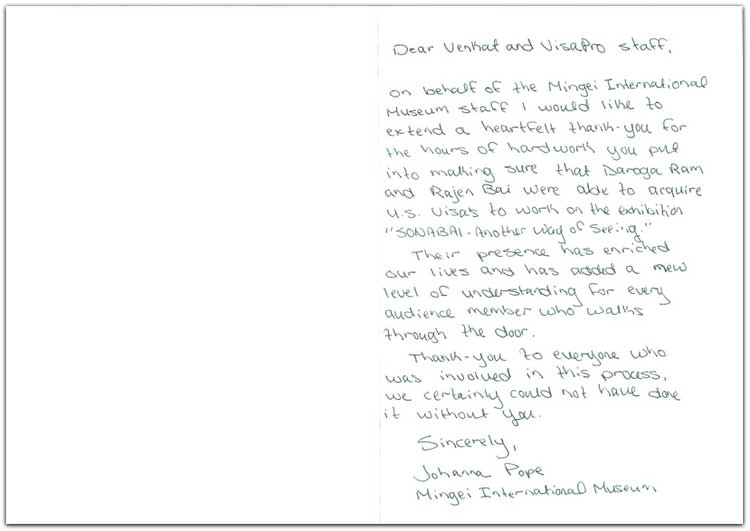 Dear Venkat and VisaPro staff,
on behalf of the Mingei International
Museum staff I would like to
extend a heartfelt thank-you for
the hours of hardwork you put
into making sure that Daroga Ram
and Rajen Bai were able to acquire
U.S. Visas to work on the exhibition
"SONABAI-Another Way of Seeing."
Their presence has enriched
our lives and has added a new
level of understanding for every
audience member who walks
through the door.
Thank-you to everyone who
was involved in this process,
we certainly could not have done
it without you.
Sincerely,
Johanna Pope
Mingei International Museum